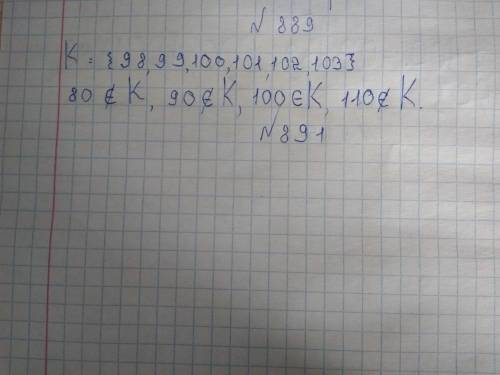 № 889
K = {98, 99, 100, 101, 102, 103}
80 ∉ K, 90 ∉ K, 100 ∈ K, 110 ∉ K.
№ 891